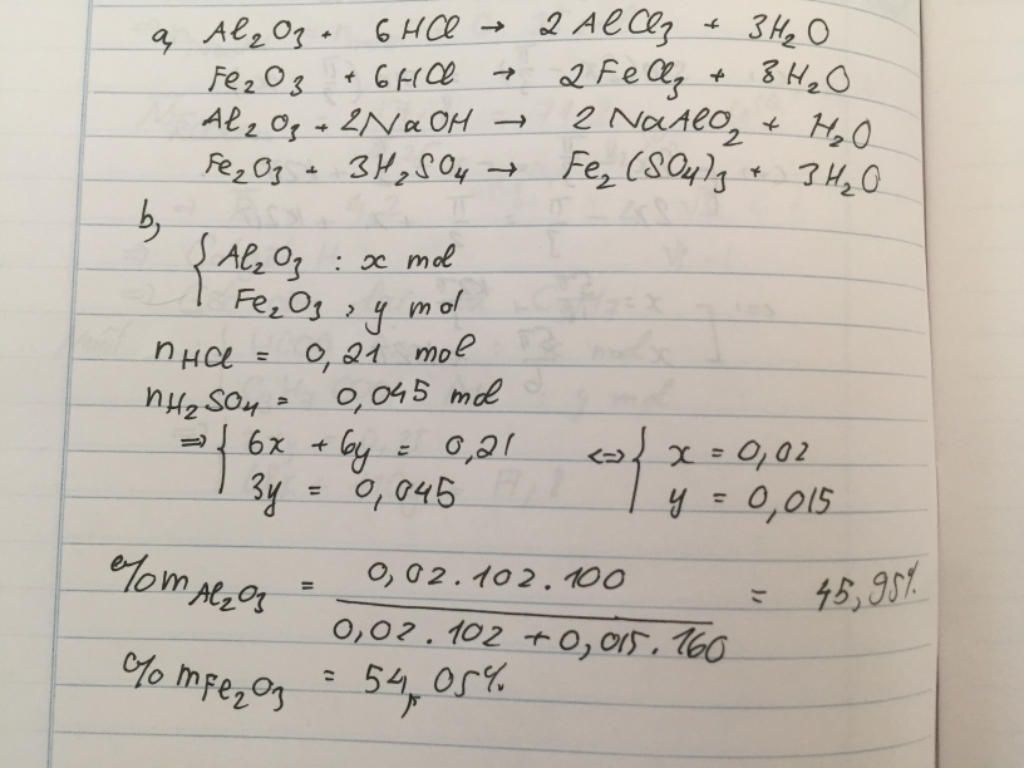 a, Al2O3 + 6HCl → 2AlCl3 + 3H2O
Fe2O3 + 6HCl → 2FeCl3 + 3H2O
Al2O3 + 2NaOH → 2NaAlO2 + H2O
Fe2O3 + 3H2SO4 → Fe2(SO4)3 + 3H2O
b,
{ Al2O3 : x mol
Fe2O3 , y mol
nHCl = 0,21 mol
nH2SO4 = 0,045 mol
⇒ { 6x + 6y = 0,21 ⇔ { x = 0,02
3y = 0,045 y = 0,015
%mAl2O3 = 0,02.102.100 / 0,02.102 + 0,015.160 = 45,95%
%mFe2O3 = 54,05%